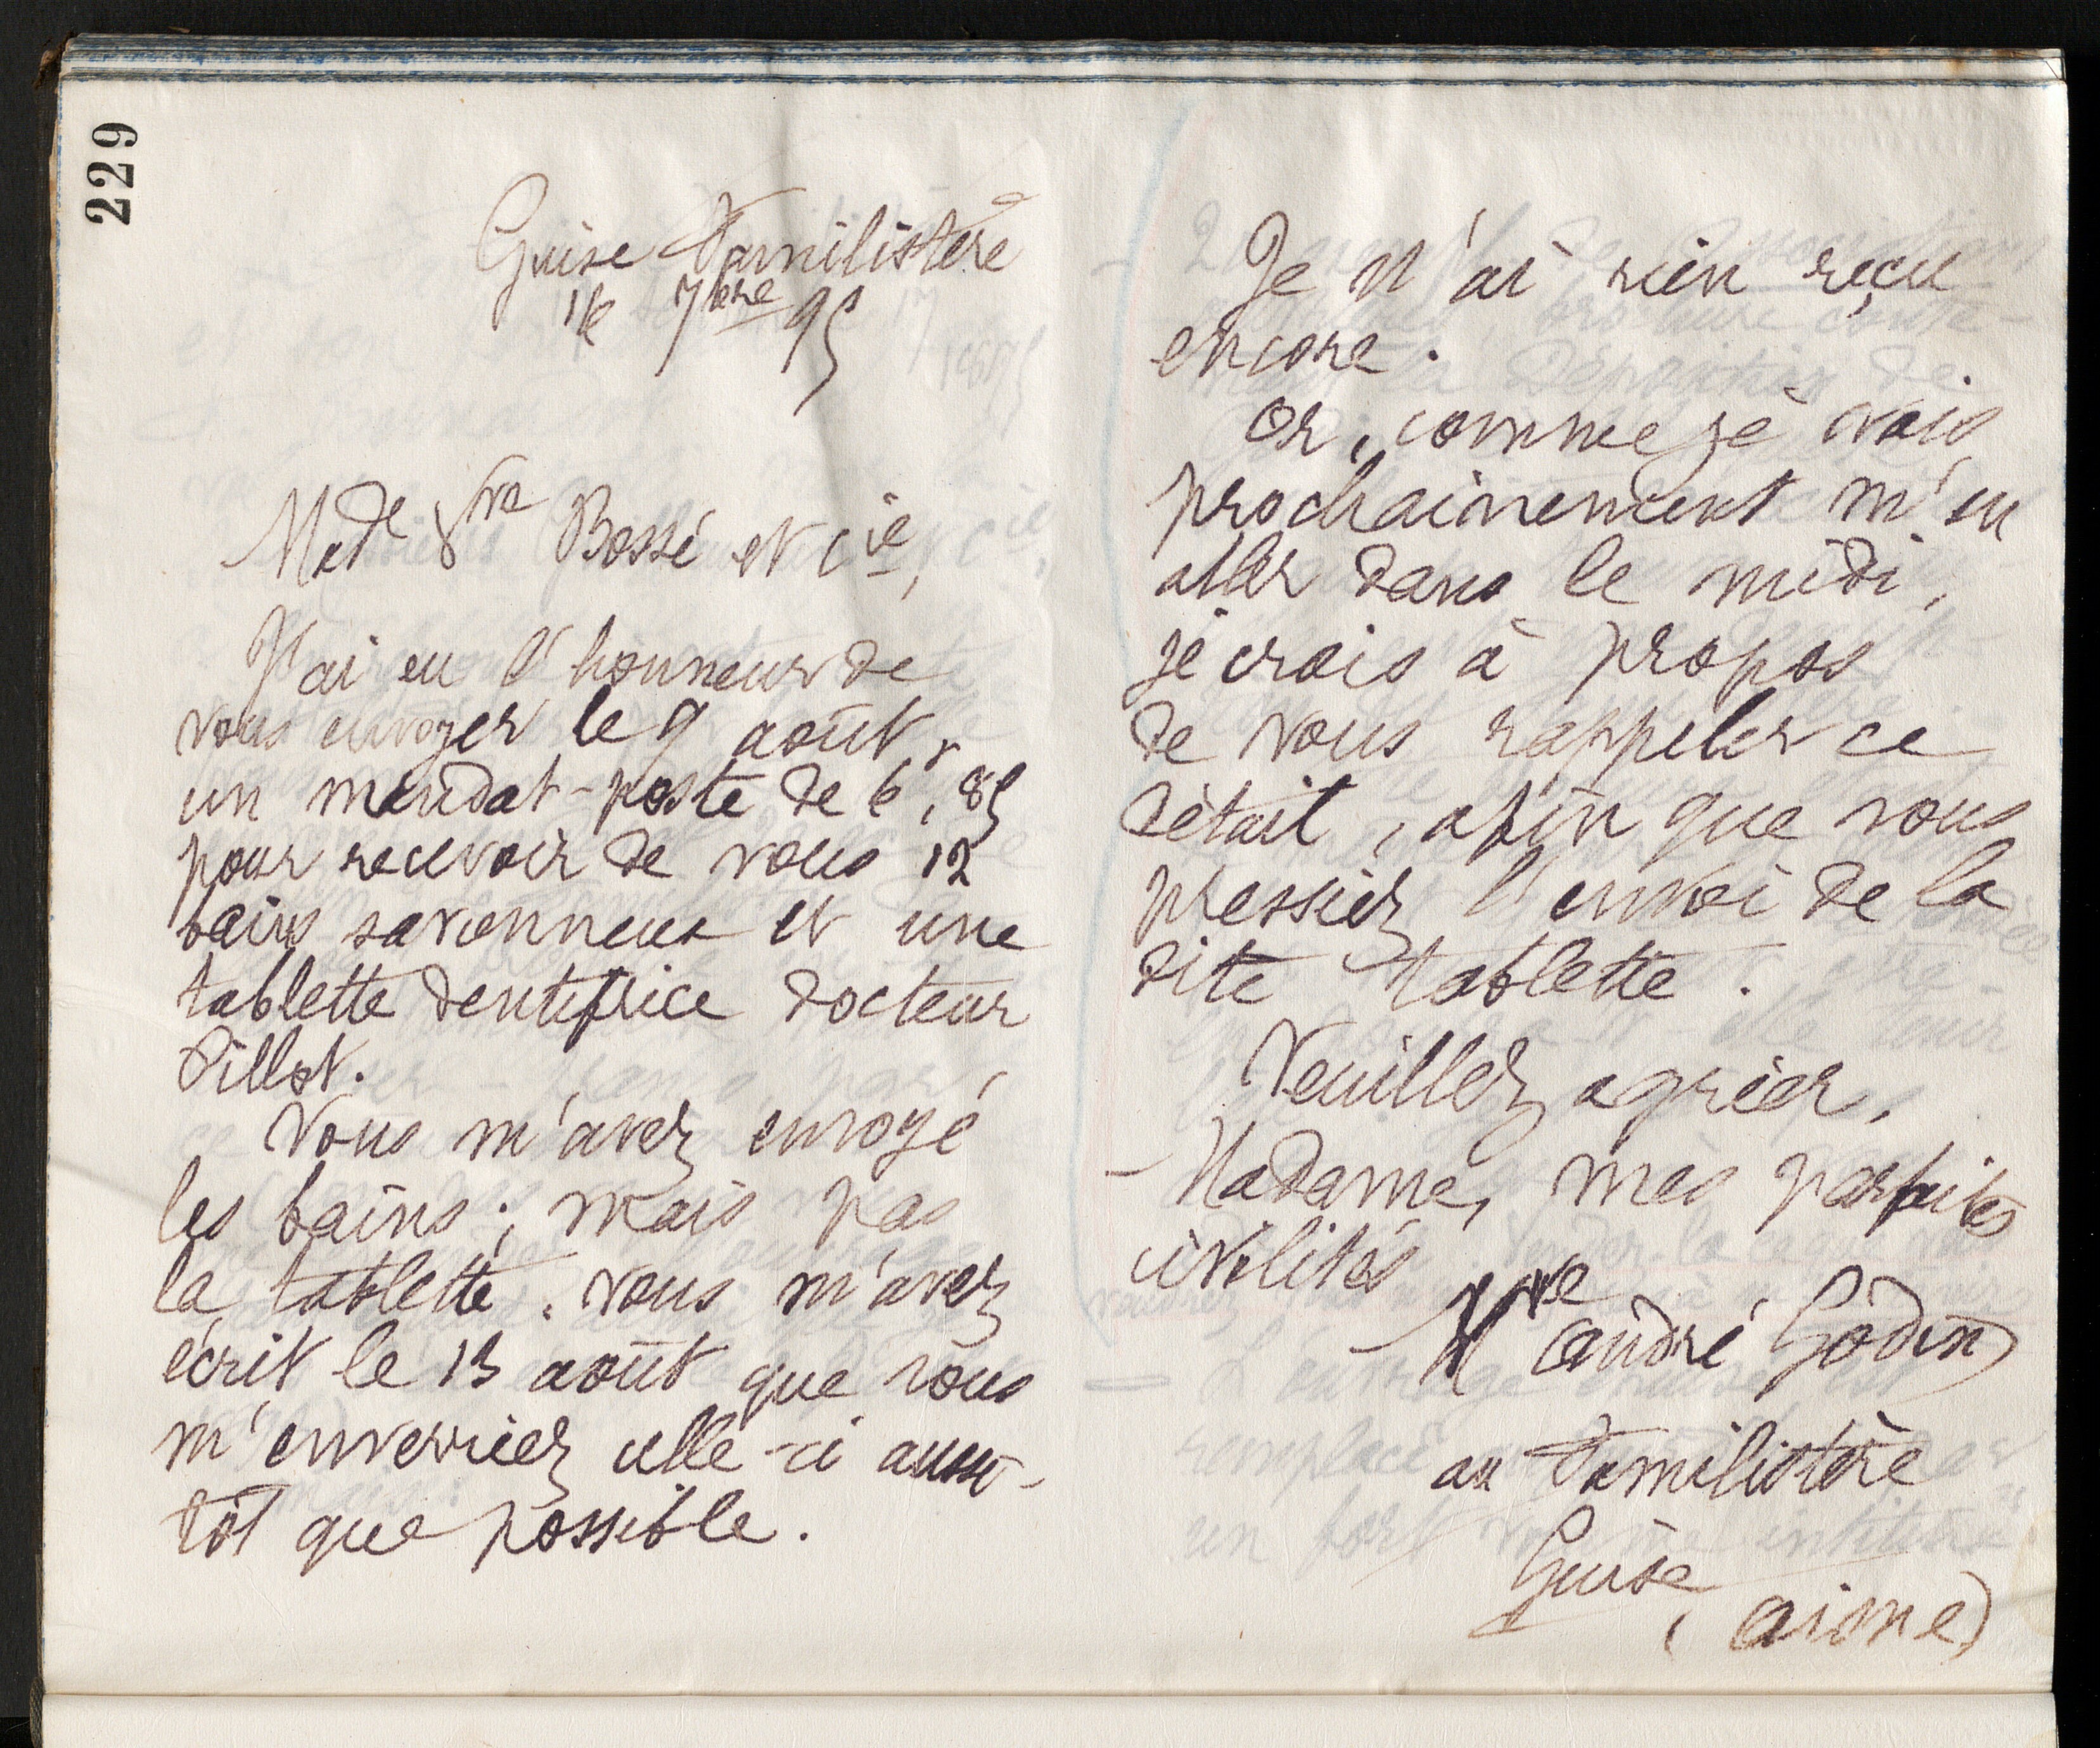 229
Guise Familistère
16 7bre 95
Made Vve Bossé et Cie,
J'ai eu l'honneur de
vous envoyer le 9 août,
un mandat-poste de 6f,85
pour recevoir de vous 12
bains savonneux et une
tablette dentifrice docteur
Pillot.
Vous m'avez envoyé
les bains ; mais pas
la tablette. Vous m'avez
écrit le 13 août que vous
m'enverriez celle-ci aussi-
tôt que possible.
Je n'ai rien reçu
encore.
Or, comme je vais
prochainement m'en
aller dans le midi,
je crois à propos
de vous rappeler ce
détail, afin que vous
pressiez l'envoi de la
dite tablette.
Veuillez agréer,
Madame, mes parfaites
civilités
Vve André Godin
au Familistère
Guise
(Aisne)